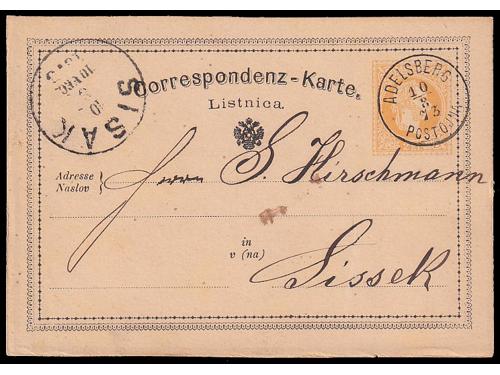 SISAK
10
Correspondenz-Karte.
Listnica.
ADELSBERG
10
8
73
POSTOJNA
Adresse
Naslov
Herrn G. Hirschmann
in
v (na)
Sissek